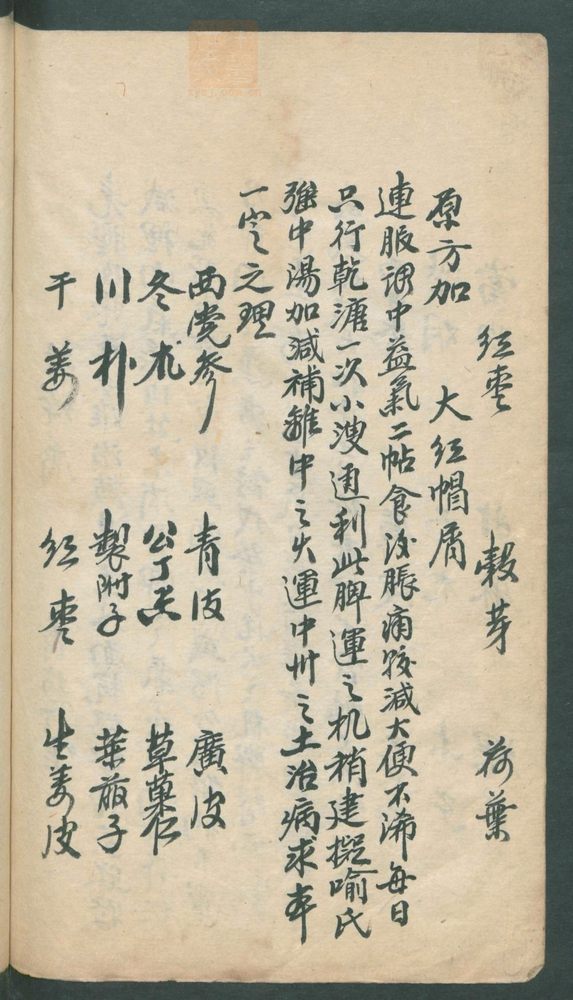 红枣 穀芽 荷葉
原方加 大红帽屑
連服调中益氣二帖食後脹痛較減大便不溏每日
只行乾溏一次小溲通利此脾運之机稍建擬喻氏
強中湯加減補雖中之火運中州之土治病求本
一定之理
西党参 青皮 廣皮
冬朮 公丁香 草菓仁
川朴 製附子 莱菔子
干姜 红枣 生姜皮